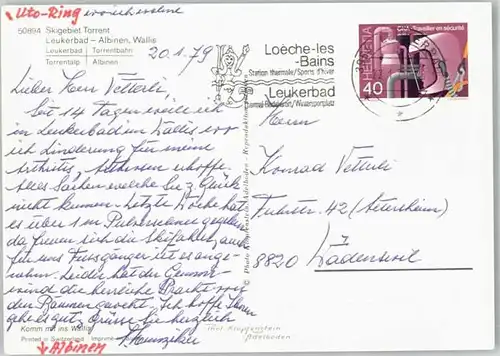 Uto-Ring
50894 Skigebiet Torrent
Leukerbad – Albinen, Wallis
Leukerbad | Torrentbahn
Torrentalp | Albinen
20.1.79
Lieber Herr Vetterli,
Seit 14 Tagen weile ich
in Leukerbad im Wallis wo
ich Linderung für meine
Arthritis, Arthrosen erhoffe.
Alles Sachen welche Sie z. Glück
nicht kennen. Letzte Woche hat
es über 1 m Pulverschnee gegeben
da freuen sich die Skifahrer, auch
für uns Fussgänger ist es ange-
nehm. Leider hat der
wind die herrliche Pracht von
den Bäumen gewht. Ich hoffe Ihnen
gehe es gut, Grüsse Sie herzlich
Komm mit ins Wallis
Printed in Switzerland Imprimé
Albinen
Loèche-les
-Bains
Station thermale/Sports d'hiver
Leukerbad
Thermal-Badekurort/Wintersportplatz
HELVETIA
Travailler en sécurité
40
Herrn
Konrad Vetterli
(Altersheim)
8820 Wädenswil
© Photo Klopfenstein Adelboden - Reproduktion
Phot. Klopfenstein
Adelboden